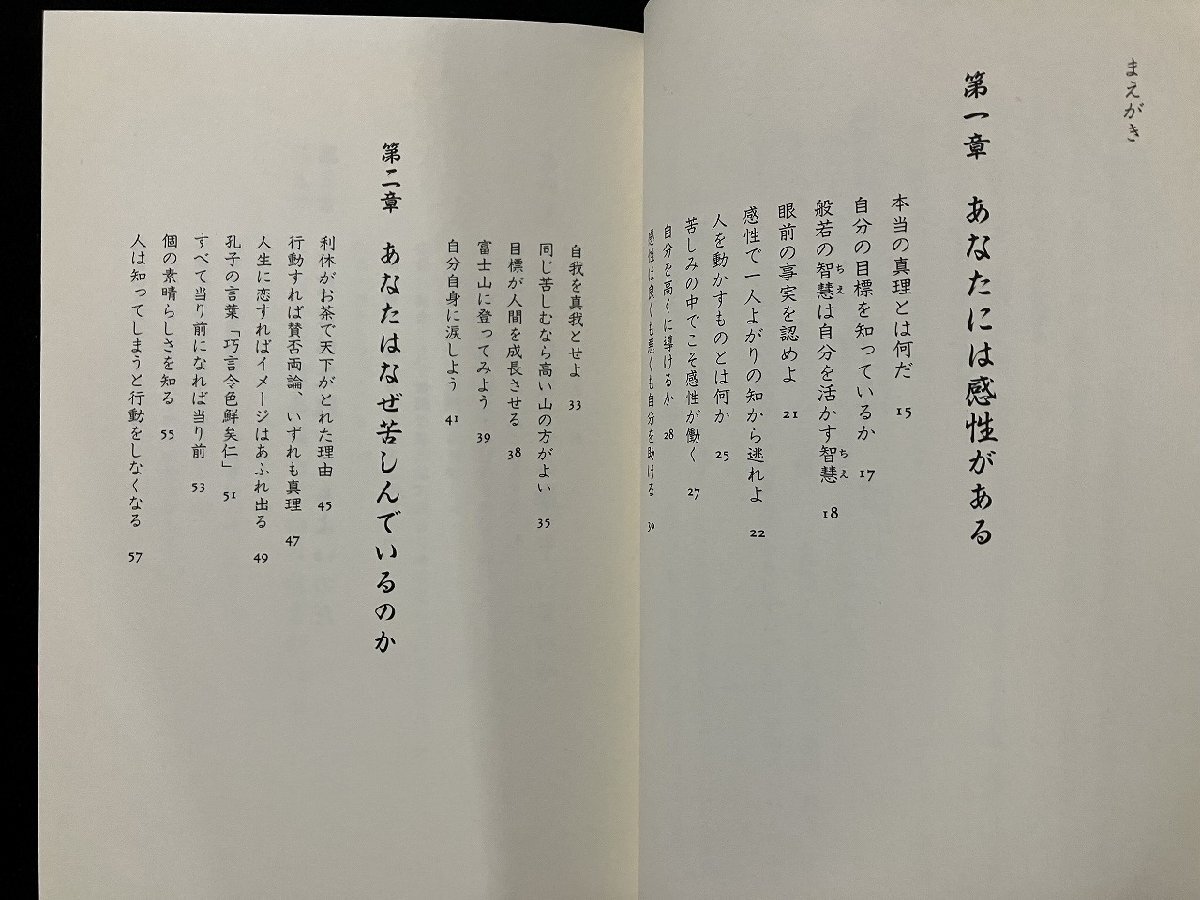 まえがき
第一章 あなたには感性がある
本当の真理とは何だ 15
自分の目標を知っているか 17
般若の智慧は自分を活かす智慧 18
ちえ
ちえ
眼前の事実を認めよ 21
感性で一人よがりの知から逃れよ 22
人を動かすものとは何か 25
苦しみの中でこそ感性が働く 27
自分を高くに導けるか 28
感性は良くも悪くも自分を助ける 30
自我を真我とせよ 33
同じ苦しむなら高い山の方がよい 35
目標が人間を成長させる 38
富士山に登ってみよう 39
自分自身に涙しよう 41
第二章 あなたはなぜ苦しんでいるのか
利休がお茶で天下がとれた理由 45
行動すれば賛否両論、いずれも真理 47
人生に恋すればイメージはあふれ出る 49
孔子の言葉「巧言令色鮮矣仁」 51
すべて当り前になれば当り前 53
個の素晴らしさを知る 55
人は知ってしまうと行動をしなくなる 57